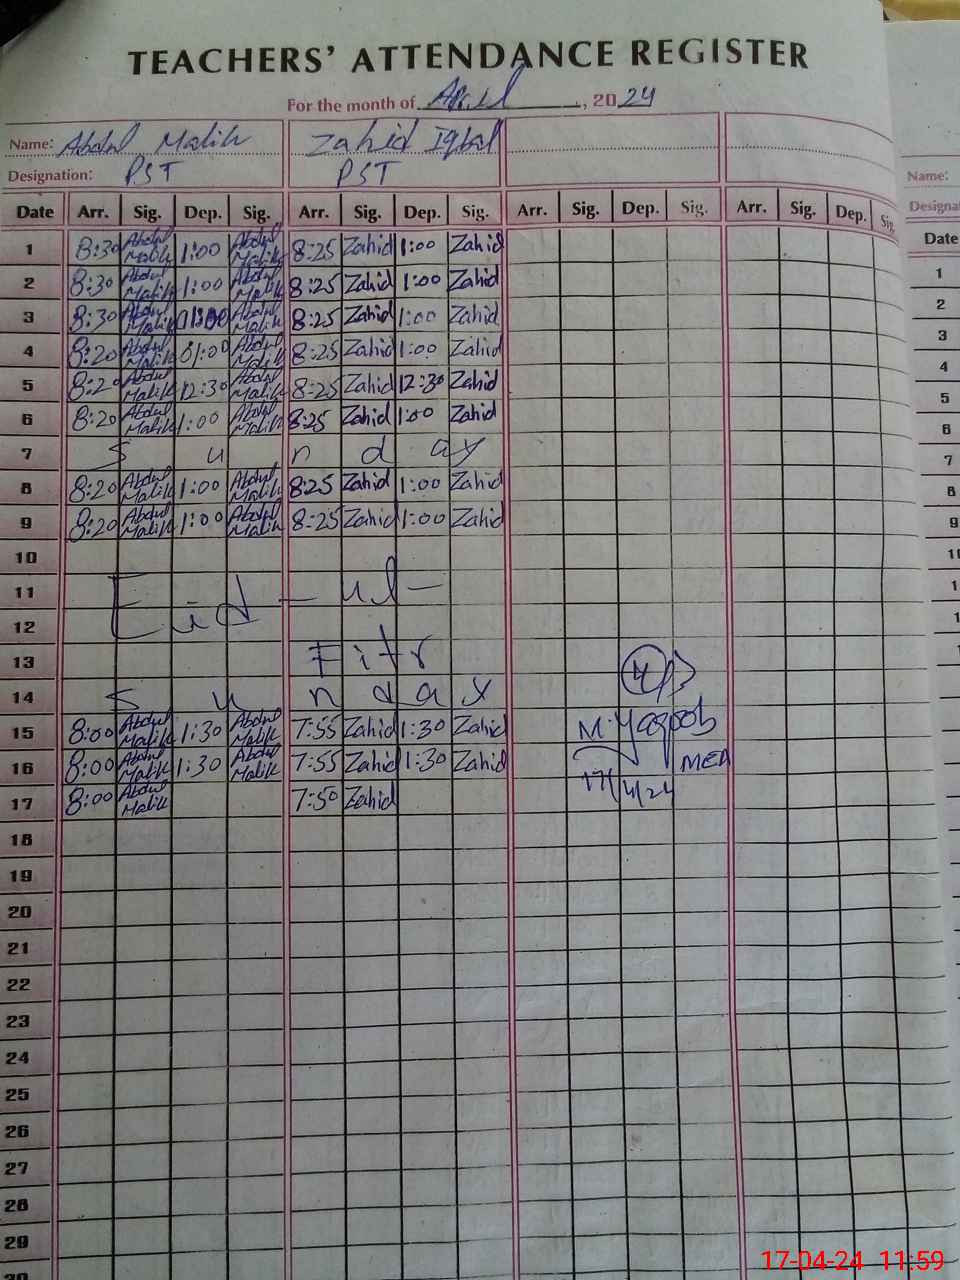 TEACHERS' ATTENDANCE REGISTER
For the month of April, 2024
Name: Abdul Malik Zahid Iqbal Name:
Designation: PST PST Designa
Date Arr. Sig. Dep. Sig. Arr. Sig. Dep. Sig. Arr. Sig. Dep. Sig. Arr. Sig. Dep. Sig. Date
1 8:30 Abdul Malik 1:00 Abdul Malik 8:25 Zahid 1:00 Zahid 1
2 8:30 Abdul Malik 1:00 Abdul Malik 8:25 Zahid 1:00 Zahid 2
3 8:30 Abdul Malik Abdul Malik 8:25 Zahid 1:00 Zahid 3
4 8:20 Abdul Malik 01:00 Abdul Malik 8:25 Zahid 1:00 Zahid 4
5 8:20 Abdul Malik 12:30 Abdul Malik 8:25 Zahid 12:30 Zahid 5
6 8:20 Abdul Malik 1:00 Abdul Malik 8:25 Zahid 1:00 Zahid 6
7 S u n d a y 7
8 8:20 Abdul Malik 1:00 Abdul Malik 8:25 Zahid 1:00 Zahid 8
9 8:20 Abdul Malik 1:00 Abdul Malik 8:25 Zahid 1:00 Zahid 9
10
11 Eid - ul -
12
13 Fitr 4
14 S u n d a y
15 8:00 Abdul Malik 1:30 Abdul Malik 7:55 Zahid 1:30 Zahid M. Yaqoob
16 8:00 Abdul Malik 1:30 Abdul Malik 7:55 Zahid 1:30 Zahid MEA
17 8:00 Abdul Malik 7:50 Zahid 17/4/24
18
19
20
21
22
23
24
25
26
27
28
29
30
17-04-24 11:59